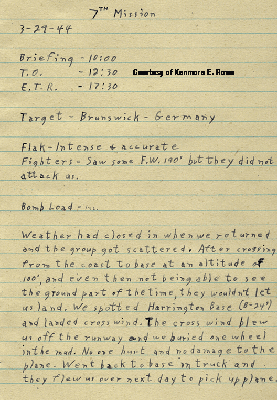 7TH Mission
3-29-44
Briefing - 10:00
T.O. - 12:30 Courtesy of Kenmore E. Rowe
E.T.R. - 17:30
Target - Brunswick - Germany
Flak - Intense & accurate
Fighters - Saw some F.W. 190s but they did not
attack us.
Bomb Load -
Weather had closed in when we returned
and the group got scattered. After crossing
from the coast to base at an altitude of
100', and even then not being able to see
the ground part of the time, they wouldn't let
us land. We spotted Harrington Base (B-24s)
and landed crosswind. The cross wind blew
us off the runway and we buried one wheel
in the mud. No one hurt and no damage to the
plane. Went back to base in truck and
they flew us over next day to pick up plane.